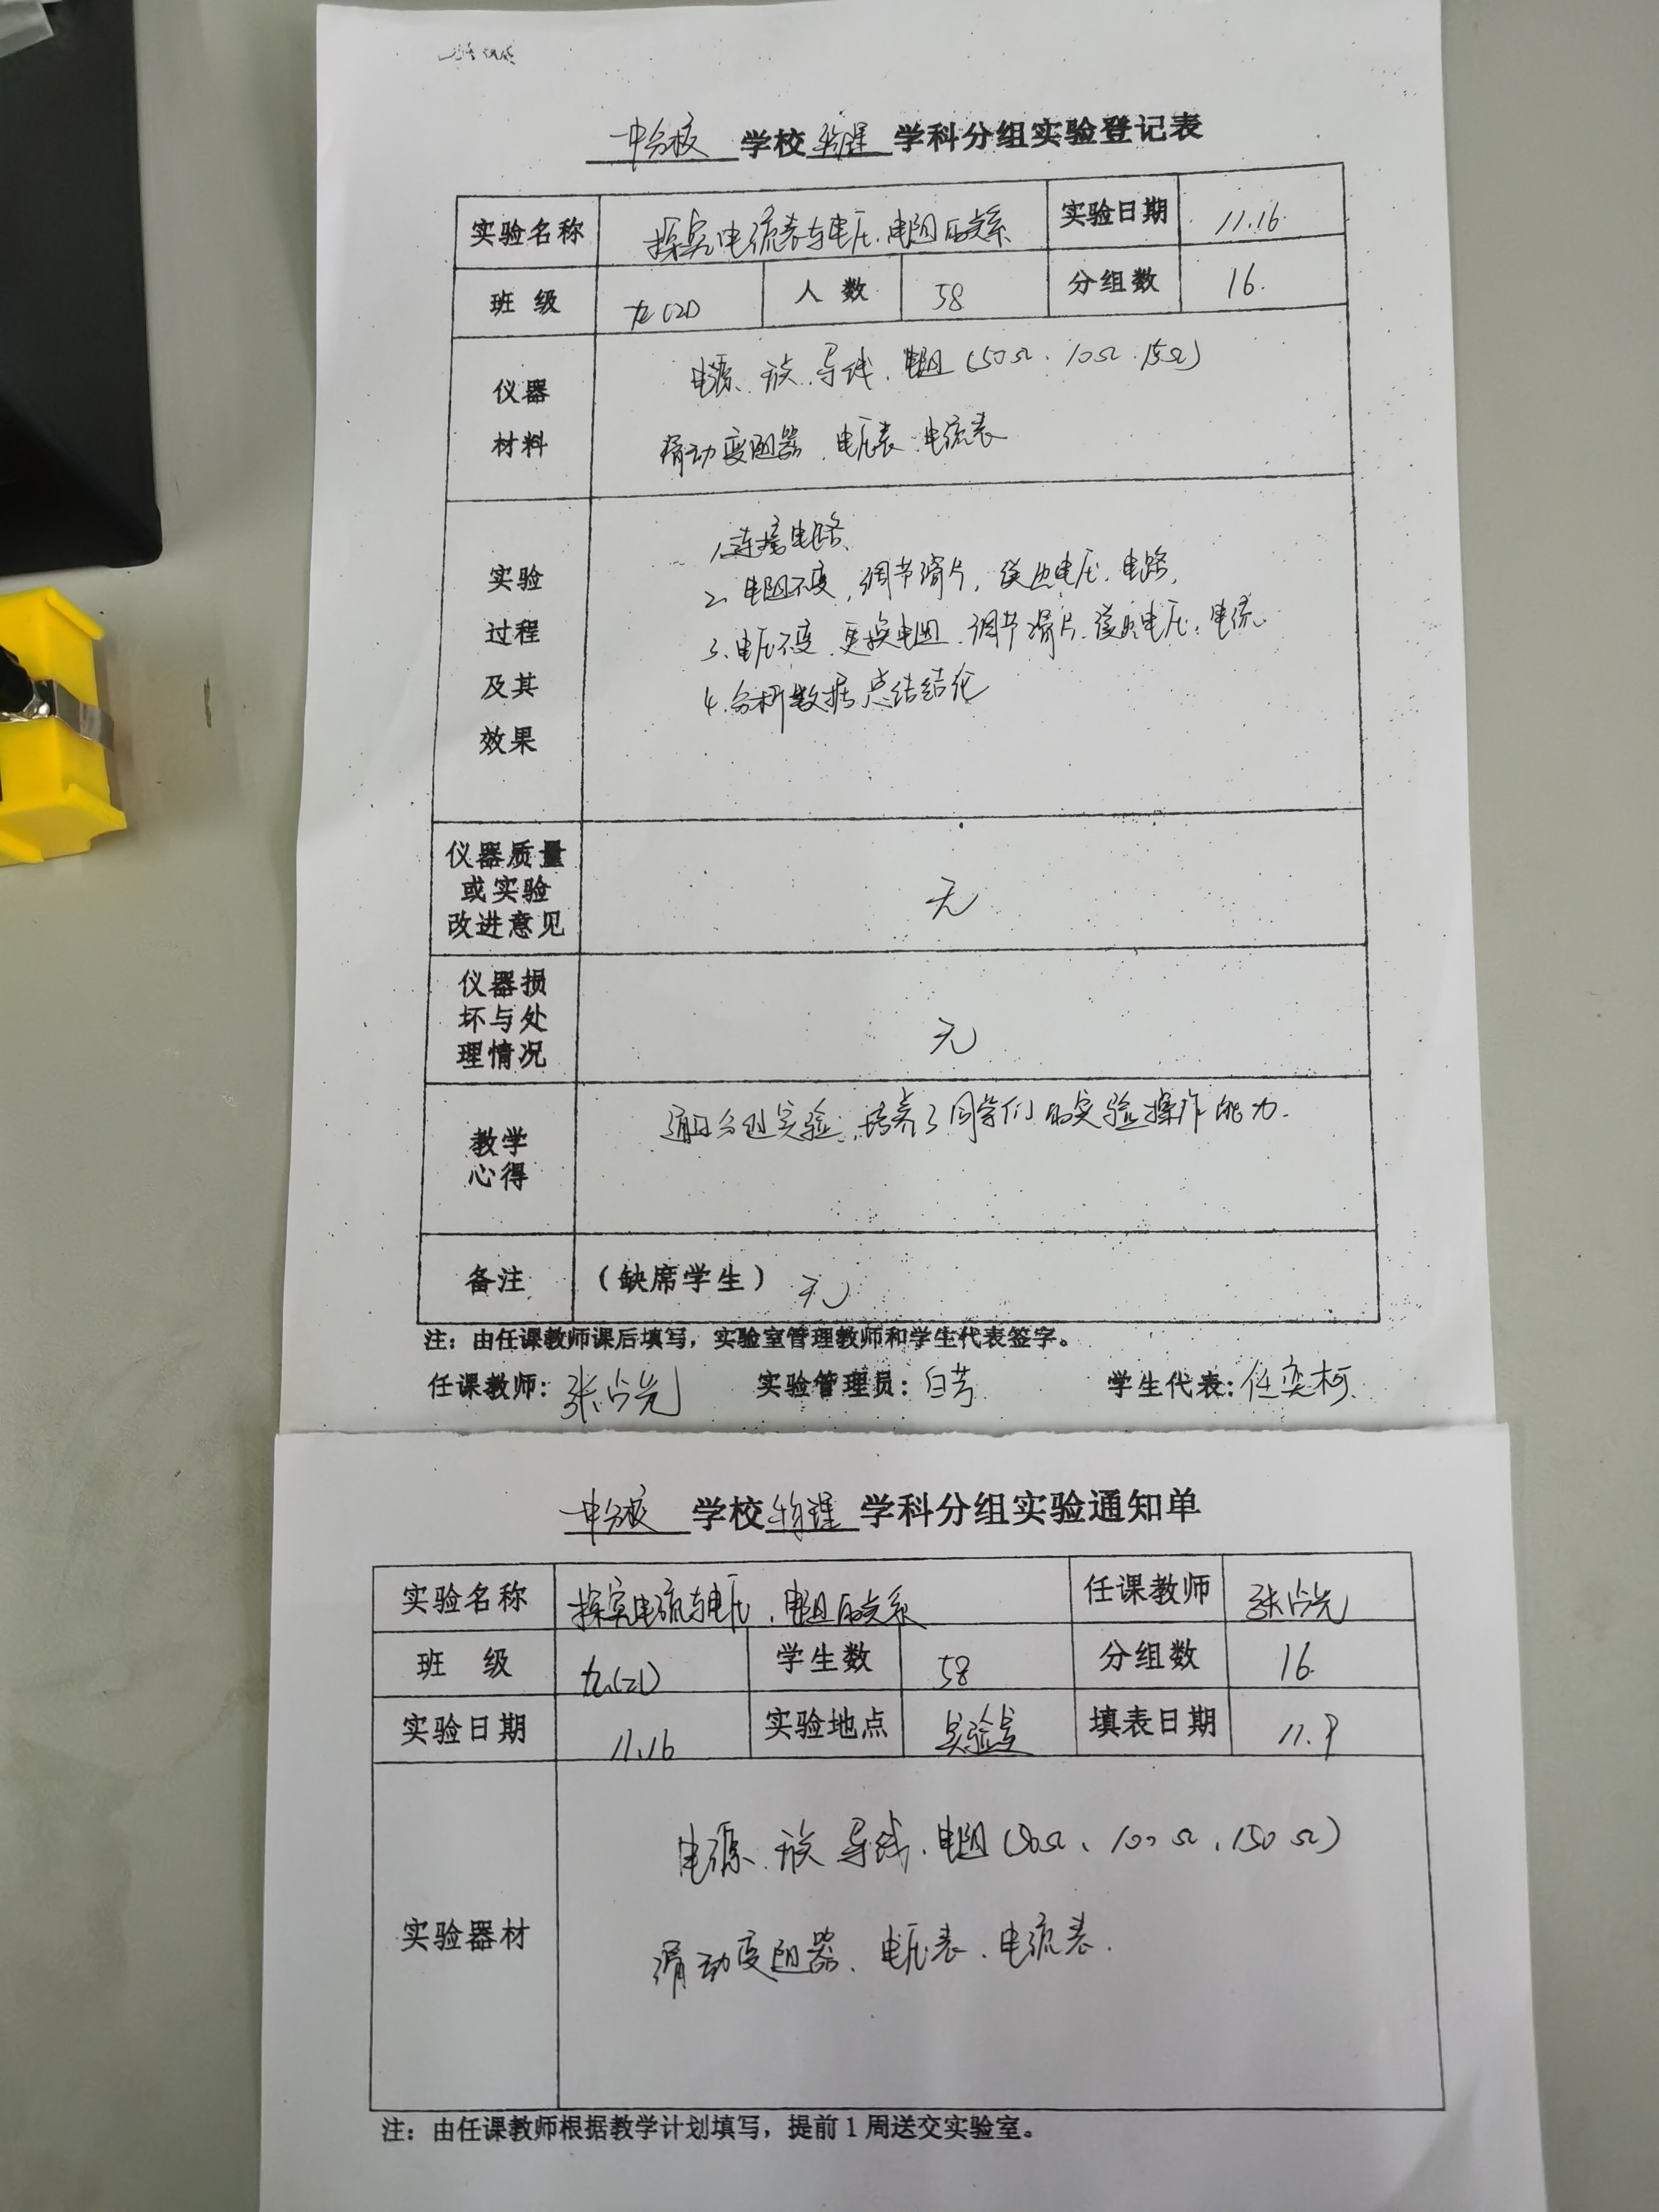 一中分校 学校 物理 学科分组实验登记表
实验名称 探究电流表与电压、电阻的关系 实验日期 11.16
班级 九(21) 人数 58 分组数 16.
仪器材料
电源、开关、导线、电阻(50Ω、10Ω、15Ω)
滑动变阻器、电压表、电流表
实验过程及其效果
1.连接电路、
2.电阻不变,调节滑片,读出电压、电路,
3、电压不变、更换电阻、调节滑片、读出电压、电流.
4.分析数据总结结论
仪器质量或实验改进意见 无
仪器损坏与处理情况 无
教学心得 通过分组实验,培养了同学们的实验操作能力.
备注 (缺席学生) 无
注:由任课教师课后填写,实验室管理教师和学生代表签字。
任课教师:张占光 实验管理员:白芳 学生代表:任奕柯
一中分校 学校 物理 学科分组实验通知单
实验名称 探究电流与电压、电阻的关系 任课教师 张占光
班 级 九(21) 学生数 58 分组数 16.
实验日期 11.16 实验地点 实验室 填表日期 11.9
实验器材
电源、开关、导线、电阻(50Ω、100Ω、150Ω)
滑动变阻器、电压表、电流表.
注:由任课教师根据教学计划填写,提前1周送交实验室。